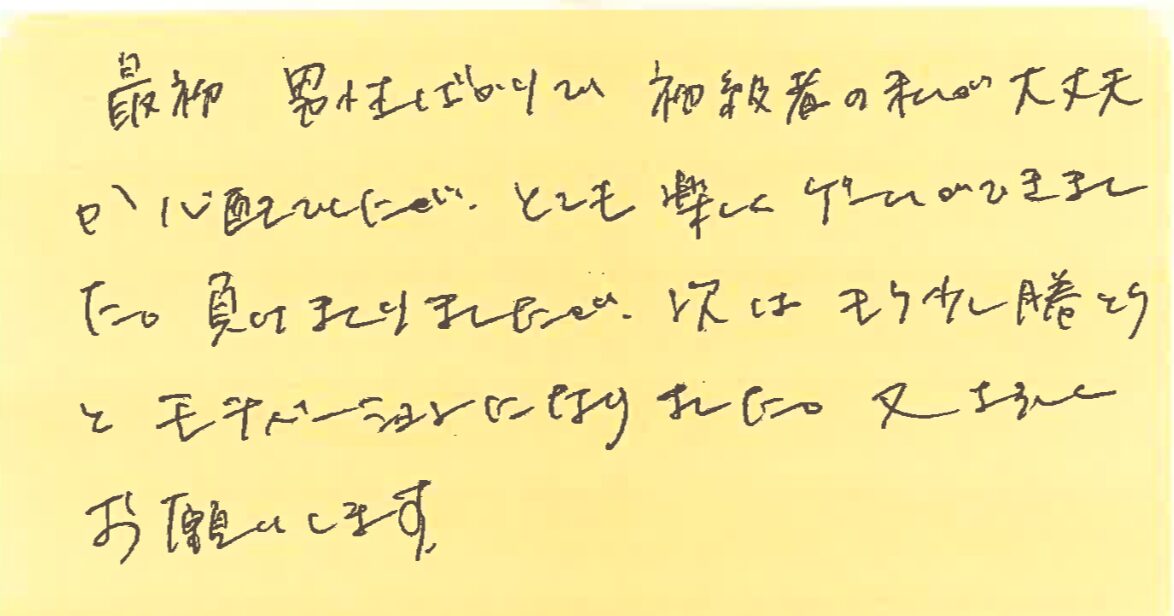 最初 男性ばかりで 初級者の私が大丈夫
か心配でしたが、とても楽しくゲームができまし
た。負けまくりましたが、次はもう少し勝とう
とモチベーションになりました。又よろしく
お願いします。